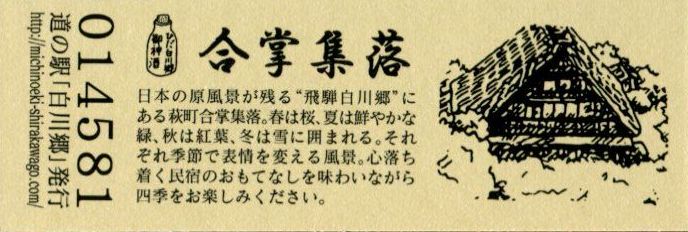 014581
道の駅「白川郷」発行
http://michinoeki-shirakawago.com/
ひだ白川郷
御神酒
合掌集落
日本の原風景が残る“飛騨白川郷”に
ある萩町合掌集落。春は桜、夏は鮮やかな
緑、秋は紅葉、冬は雪に囲まれる。それ
ぞれ季節で表情を変える風景。心落ち
着く民宿のおもてなしを味わいながら
四季をお楽しみください。